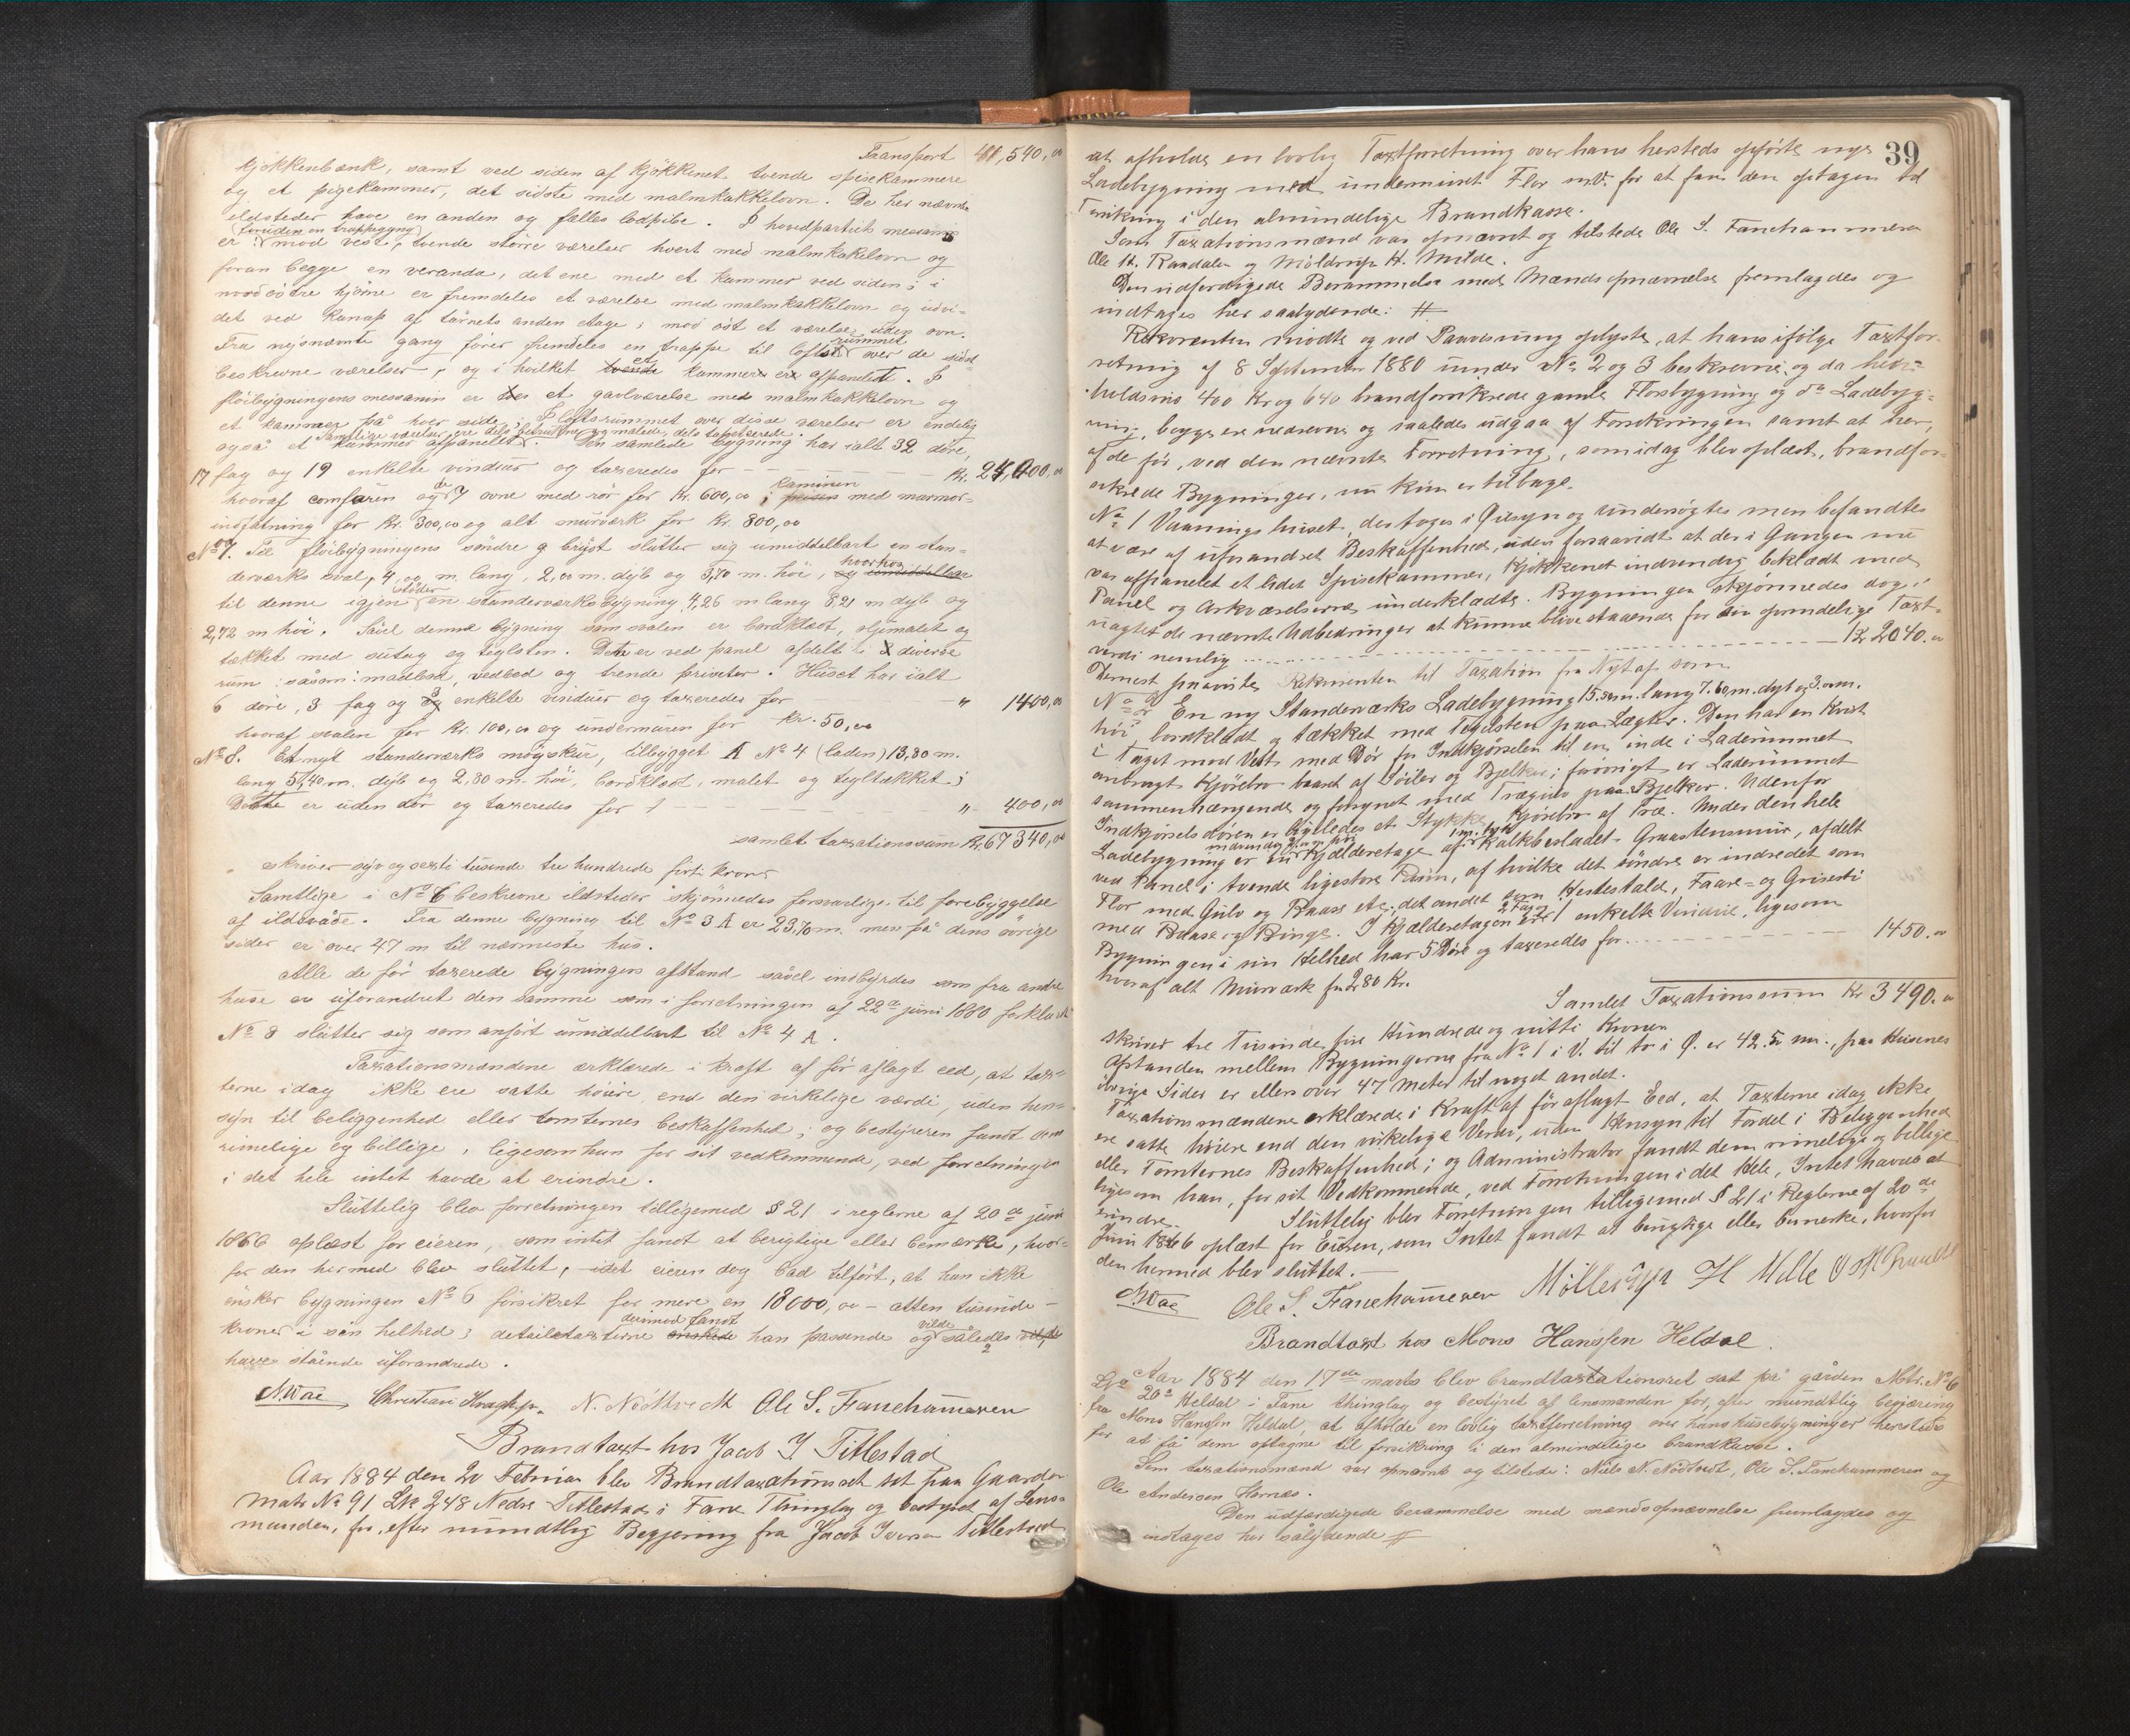 Transport 41,540,00
kjökkenbænk, samt ved siden af kjökkenet tvende spisekammere
og et pigekammer, det sidste med malmkakkelovn. De her nævnte
ildsteder have en anden og fælles lodpibe. I hovedpartiets messanin
(foruden en trappegang)
er mod vest, tvende större værelser hvert med malmkakelovn og
foran begge en veranda, det ene med et kammer ved siden; i
nordöstre hjörne er fremdeles et værelse med malmkakkelovn og udvi-
det ved karnap af tårnets anden etage; mod öst et værelse uden ovn.
Fra nysnævnte gang förer fremdeles en trappe til loftsrummet over de sidst
beskrevne værelser, og i hvilket et kammer er afpanelet. I
flöibygningens messanin er et gavlværelse med malmkakkelovn og
et kammer på hver side. I loftsrummet over disse værelser er endelig
også et kammer afpanelet. Den samlede bygning har ialt 32 döre,
Samtlige værelser ere dels betrukne og malede, dels tapetserede.
17 fag og 19 enkelte vinduer og taxeredes for — — — kr. 24,000,00
hvoraf comfuren og de 7 ovne med rör for kr. 600,00; kaminen med marmor-
indfatning for kr. 300,00 og alt murværk for kr. 800,00
No 7. Til flöibygningens söndre gbryst slutter sig umiddelbart en stan-
derværks sval, 4,00 m. lang, 2,00 m. dyb og 3,70 m. höi, hvorhos
til denne igjen stöder en standerværks bygning 4,26 m lang 8,21 m dyb og
2,72 m höi. Såvel denne bygning som svalen er bordklædt, oljemalet og
tækket med sutag og teglsten. Den er ved panel afdelt i diverse
rum såsom: madbod, vedbod og trende priveter. Huset har ialt
6 döre, 3 fag og 3 enkelte vinduer og taxeredes for — " 1400,00
hvoraf svalen for kr. 100,00 og undermuren for kr. 50,00
No 8. Et nyt standerværks möyskur, tilbygget A No 4 (laden) 13,80 m.
lang 5,40 m. dyb og 2,80 m. höi, bordklædt, malet og tegltækket;
Dette er uden dör og taxeredes for — " 400,00
samlet taxationssum kr. 67340,00
skriver syv og sexti tusende tre hundrede firti kroner
Samtlige i No 6 beskrevne ildsteder skjönnedes forsvarlige til forebyggelse
af ildsvåde. Fra denne bygning til No 3 A er 23,70 m. men på dens övrige
sider er over 47 m til nærmeste hus.
Alle de för taxerede bygningers afstand såvel indbyrdes som fra andre
huse er uforandret den samme som i forretningen af 22de juni 1880 forklaret
No 8 slutter sig som anfört umiddelbart til No 4 A.
Taxationsmændene erklærede i kraft af för aflagt eed, at tax-
terne idag ikke ere satte höiere, end den virkelige værdi, uden hen-
syn til beliggenhed eller tomternes beskaffenhed; og bestyreren fandt dem
rimelige og billige, ligesom han for sit vedkommende, ved forretningen
i det hele intet havde at erindre.
Sluttelig blev forretningen tilligemed § 21 i reglerne af 20de juni
1866 oplæst for eieren, som intet fandt at berigtige eller bemærke, hvor-
for den hermed blev sluttet, idet eieren dog bad tilfört, at han ikke
önsker bygningen No 6 forsikret for mere en 18000,00 – atten tusinde –
kroner i sin helhed; detailtaxterne derimod fandt han passende og vilde således
have stående uforandrede.
N. Nödtvedt Ole S. Fanehammeren
Brandtaxt hos Jacob I. Titlestad
Aar 1884 den 20 Februar blev Brandtaxationsret sat paa Gaarden
Matr No 91 Lb 248 Nedre Titlestad i Fane Thinglag og bestyret af Lens-
manden, for, efter mundtlig Begjæring fra Jacob Iversen Titlestad
39
at afholde en lovlig Taxtforretning over hans hersteds opförte nye
Ladebygning med undermuret Flor m.V. for at faa den optagen til
Forsikring i den almindelige Brandkasse.
Som Taxationsmænd var opnævnt og tilstede Ole S. Fanehammeren
Ole H. Raadalen og Möldrup H. Milde.
Den udfærdigede Berammelse med Mændsopnævnelse fremlagdes og
indtages her saalydende: #
Rekvirenten mödte og ved Paavisning oplyste, at hans ifölge Taxtfor-
retning af 8 September 1880 under No 2 og 3 beskrevne, og da hen-
holdsvis 400 Kr og 640 brandforsikrede gamle Florsbygning og do Ladebyg-
ning, begge ere nedrevne og saaledes udgaa af Forsikringen samt at her,
af de för, ved den nævnte Forretning, som idag blev oplæst, brandfor-
sikrede Bygninger, nu kun er tilbage.
No 1 Vaaningshuset, der toges i Öiesyn og undersögtes men befandtes
at være af uforandret Beskaffenhed, uden forsaavidt at der i Gangen nu
var afpanelet et lidet Spisekammer, Kjökkenet indvendig beklædt med
Panel og Arkværelserne underklædte. Bygningen skjönnedes dog
uagtet de nævnte Udbedringer at kunne blive staaende for sin oprindelige Taxt-
værdi nemlig — Kr. 2040.00
Dernest paaviste Rekvirenten til Taxation fra Nyt af som
No 2 En ny Standerværks Ladebygning 15.50 m. lang 7.60 m. dyb og 3.00 m.
höi, bordklædt og tækket med Teglsten paa Lægter. Den har en Kvist
i Taget mod Vest med Dör for Indkjörselen til en inde i Laderummet
anbragt Kjörebro baaret af Söiler og Bjelker; forövrigt er Laderummet
sammenhængende og forsynet med Trægulv paa Bjelker. Udenfor
Indkjörselsdören er ligeledes et Stykke Kjörebro af Træ. Under den hele
Ladebygning er en Kjælderetage af 1 m. tyk Kalkbesladet Graastensmur, afdelt
ved Panel i tvende ligestore Rum, af hvilke det söndre er indredet som
Flor med Gulv og Baase etc.; det andet som Hestestald, Faare- og Grisesti
med Baase og Binge. I Kjælderetagen er 2 Fag og 1 enkelte Vindue, ligesom
Bygningen i sin Helhed har 5 Döre og taxeredes for — 1450.00
hvoraf alt Murværk for 280 Kr.
Samlet Taxationssum Kr 3490.00
skriver tre Tusinde, fire Hundrede og nitti Kroner
Afstanden mellem Bygningerne fra No 1 i V. til to i Ö. er 42.50 m., paa Husenes
övrige Sider er ellers over 47 Meter til noget andet.
Taxationsmændene erklærede i Kraft af för aflagt Eed, at Taxterne idag ikke
ere satte höiere end den virkelige Værdi, uden Hensyn til Fordel i Beliggenhed
eller Tomternes Beskaffenhed; og Administrator fandt dem rimelige og billige
ligesom han, for sit Vedkommende, ved Forretningen i det Hele, Intet havde at
erindre.
Sluttelig blev Forretningen tilligemed § 21 i Reglerne af 20de
Juni 1866 oplæst for Eieren, som Intet fandt at berigtige eller bemerke, hvorfor
den hermed blev sluttet.—
Ole S. Fanehammeren Möllerup H Milde O H Raadal
Brandtaxt hos Mons Hanssen Heldal.
Aar 1884 den 17de marts blev brandtaxtationsret sat på gården Mtr. No 6
20a Heldal i Fane thinglag og bestyret af lensmanden for, efter mundtlig begjæring
fra Mons Hanssen Heldal, at afholde en lovlig taxtforretning over hans husebygninger hersteds
for at få dem optagne til forsikring i den almindelige brandkasse.
Som taxationsmænd var opnævnt og tilstede: Niels N. Nödtvedt, Ole S. Fanehammeren og
Ole Andersen Hornæs.
Den udfærdigede berammelse med mændsopnævnelse fremlagdes og
indtages her sålydende #